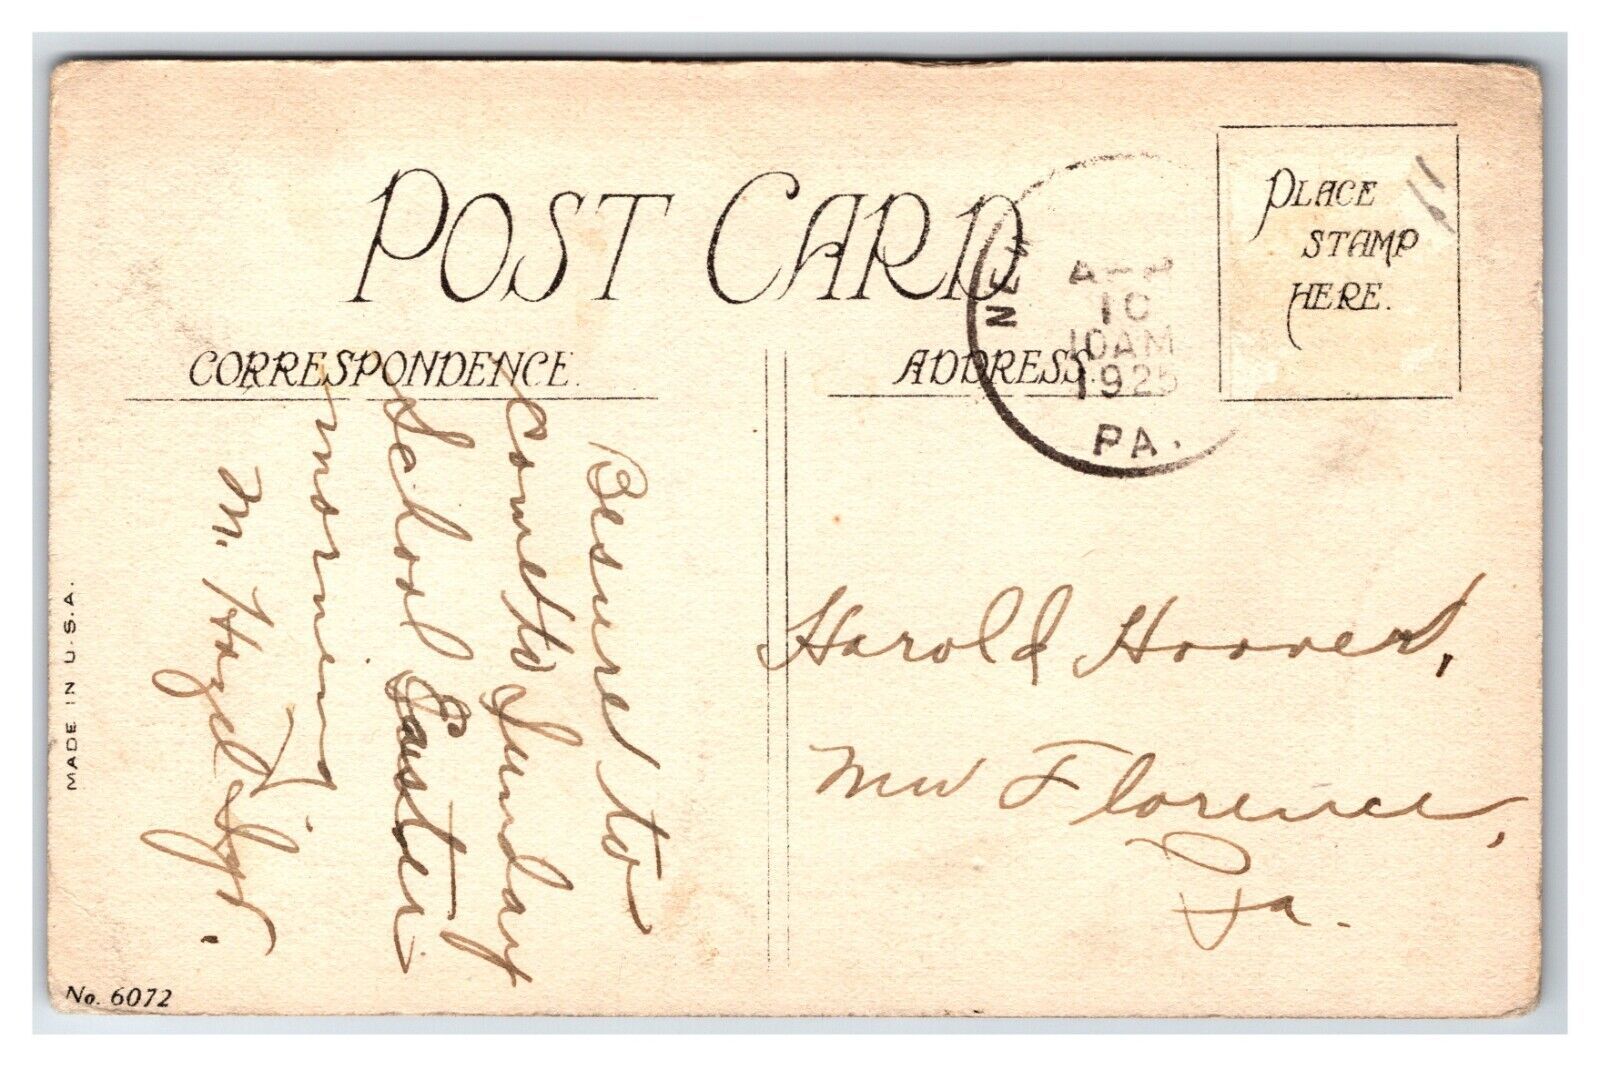 POST CARD
CORRESPONDENCE.
ADDRESS.
PLACE
STAMP
HERE.
NEW
10
10AM
1925
PA.
Be sure to
come to Sunday
School Easter
morning
M. Hazel
Harold Hoover,
New Florence,
Pa.
MADE IN U.S.A.
No. 6072